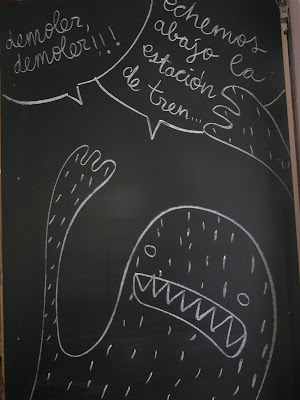 demoler,
demoler!!!
echemos
abajo la
estación
de tren...